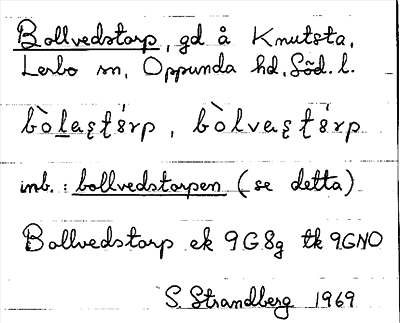 Bollvedstorp, gd å Knutsta,
Lerbo sn, Oppunda hd, Söd. l.
bòlaștórp, bòlvaștórp
inb.: bollvedstorpen (se detta)
Bollvedstorp ek 9G8g tk 9GNO
S. Strandberg 1969